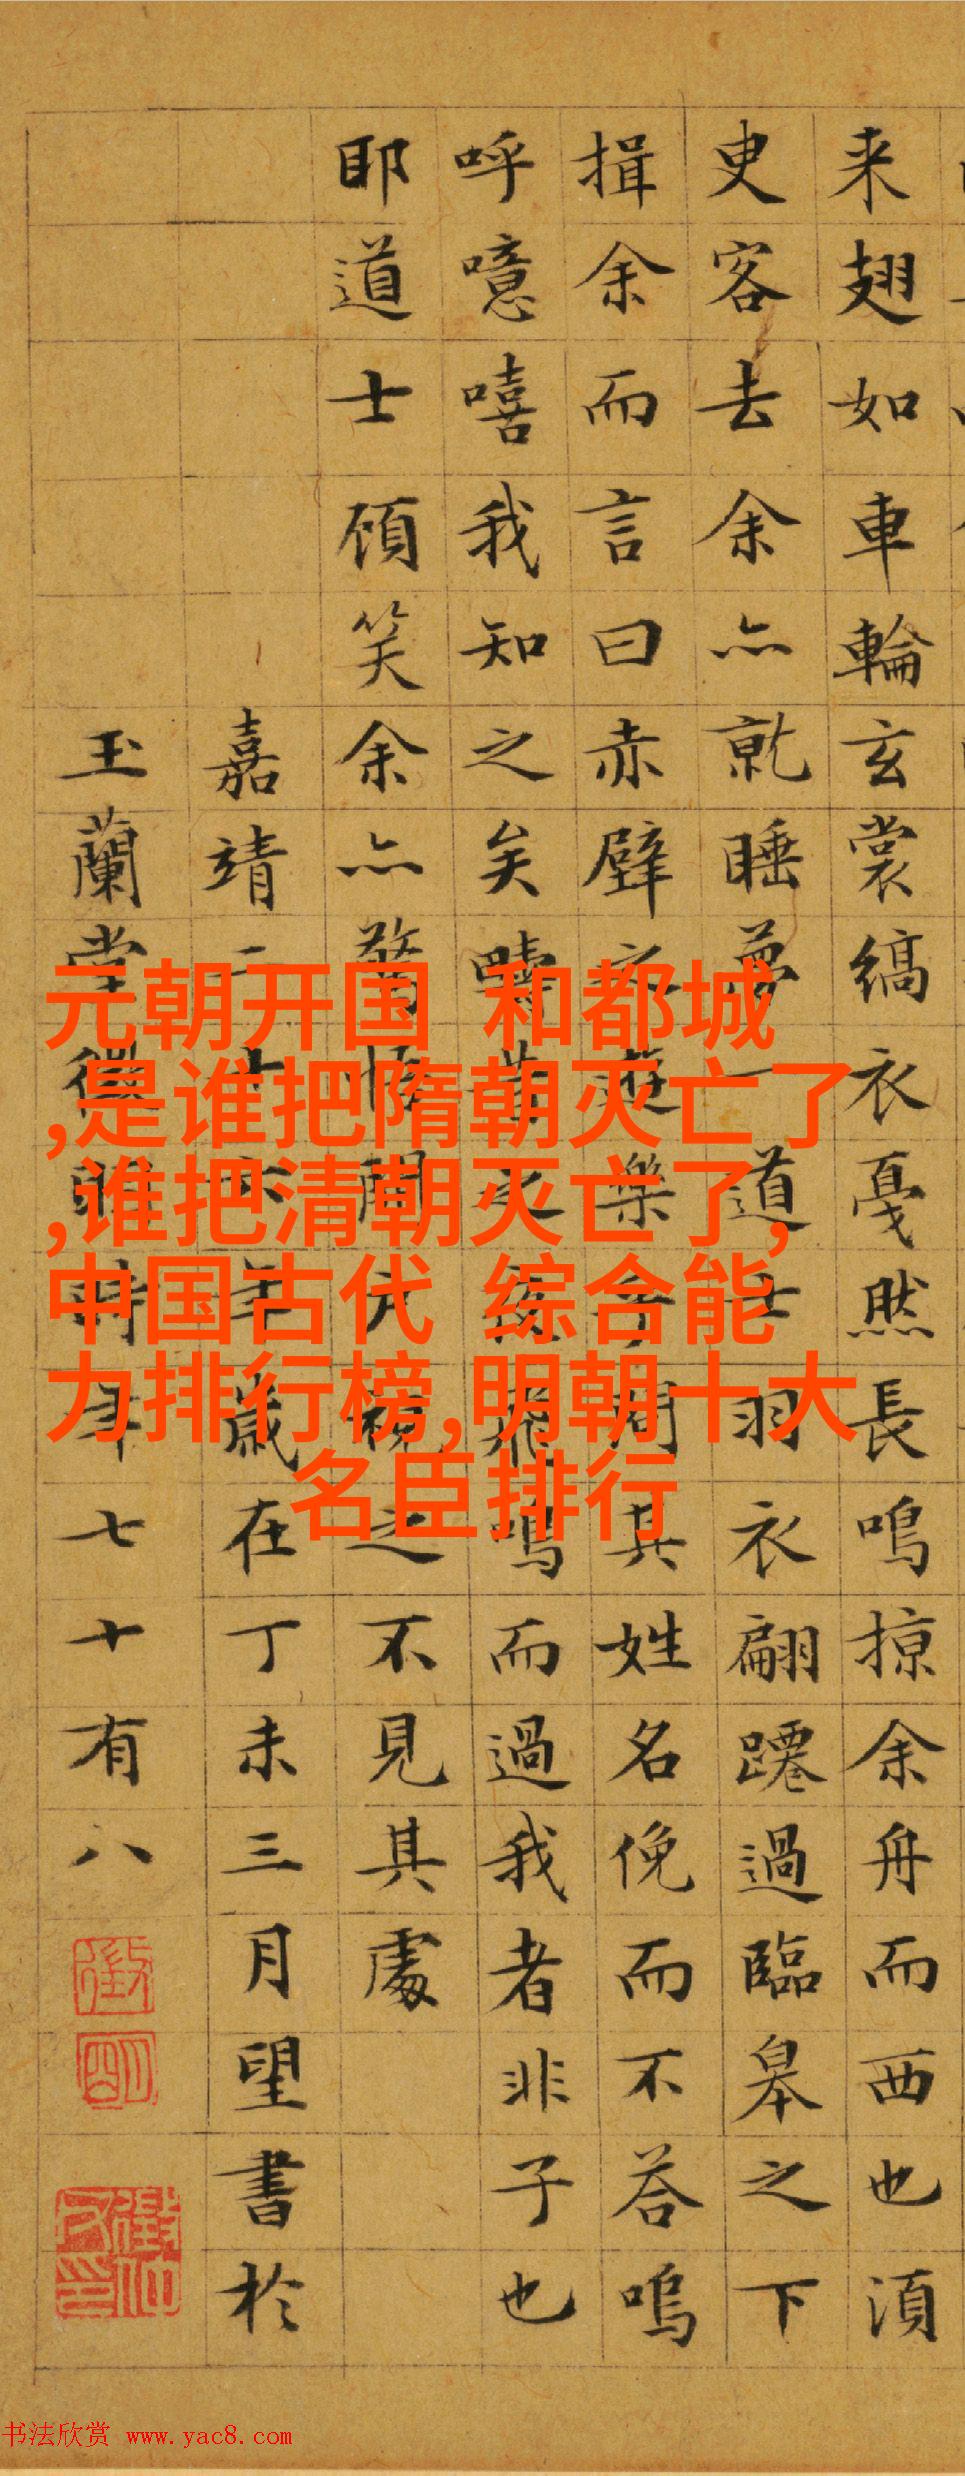 来翅如車輪玄裳縞衣戛然長鳴掠余舟而西也湏
叓客去余亦就睡夢一道士羽衣翩躚過臨皋之下
揖余而言曰赤壁之遊樂乎問其姓名俛而不荅嗚
呼噫嘻我知之矣疇昔之夜飛鳴而過我者非子也
耶道士顧笑余亦驚悟開户視之不見其處
嘉靖二十六年歲在丁未三月望書於
玉蘭堂徵明時年七十有八
元朝开国 和都城
,是谁把隋朝灭亡了
,谁把清朝灭亡了,
中国古代 综合能
力排行榜,明朝十大
名臣排行
书法欣赏 www.yac8.com